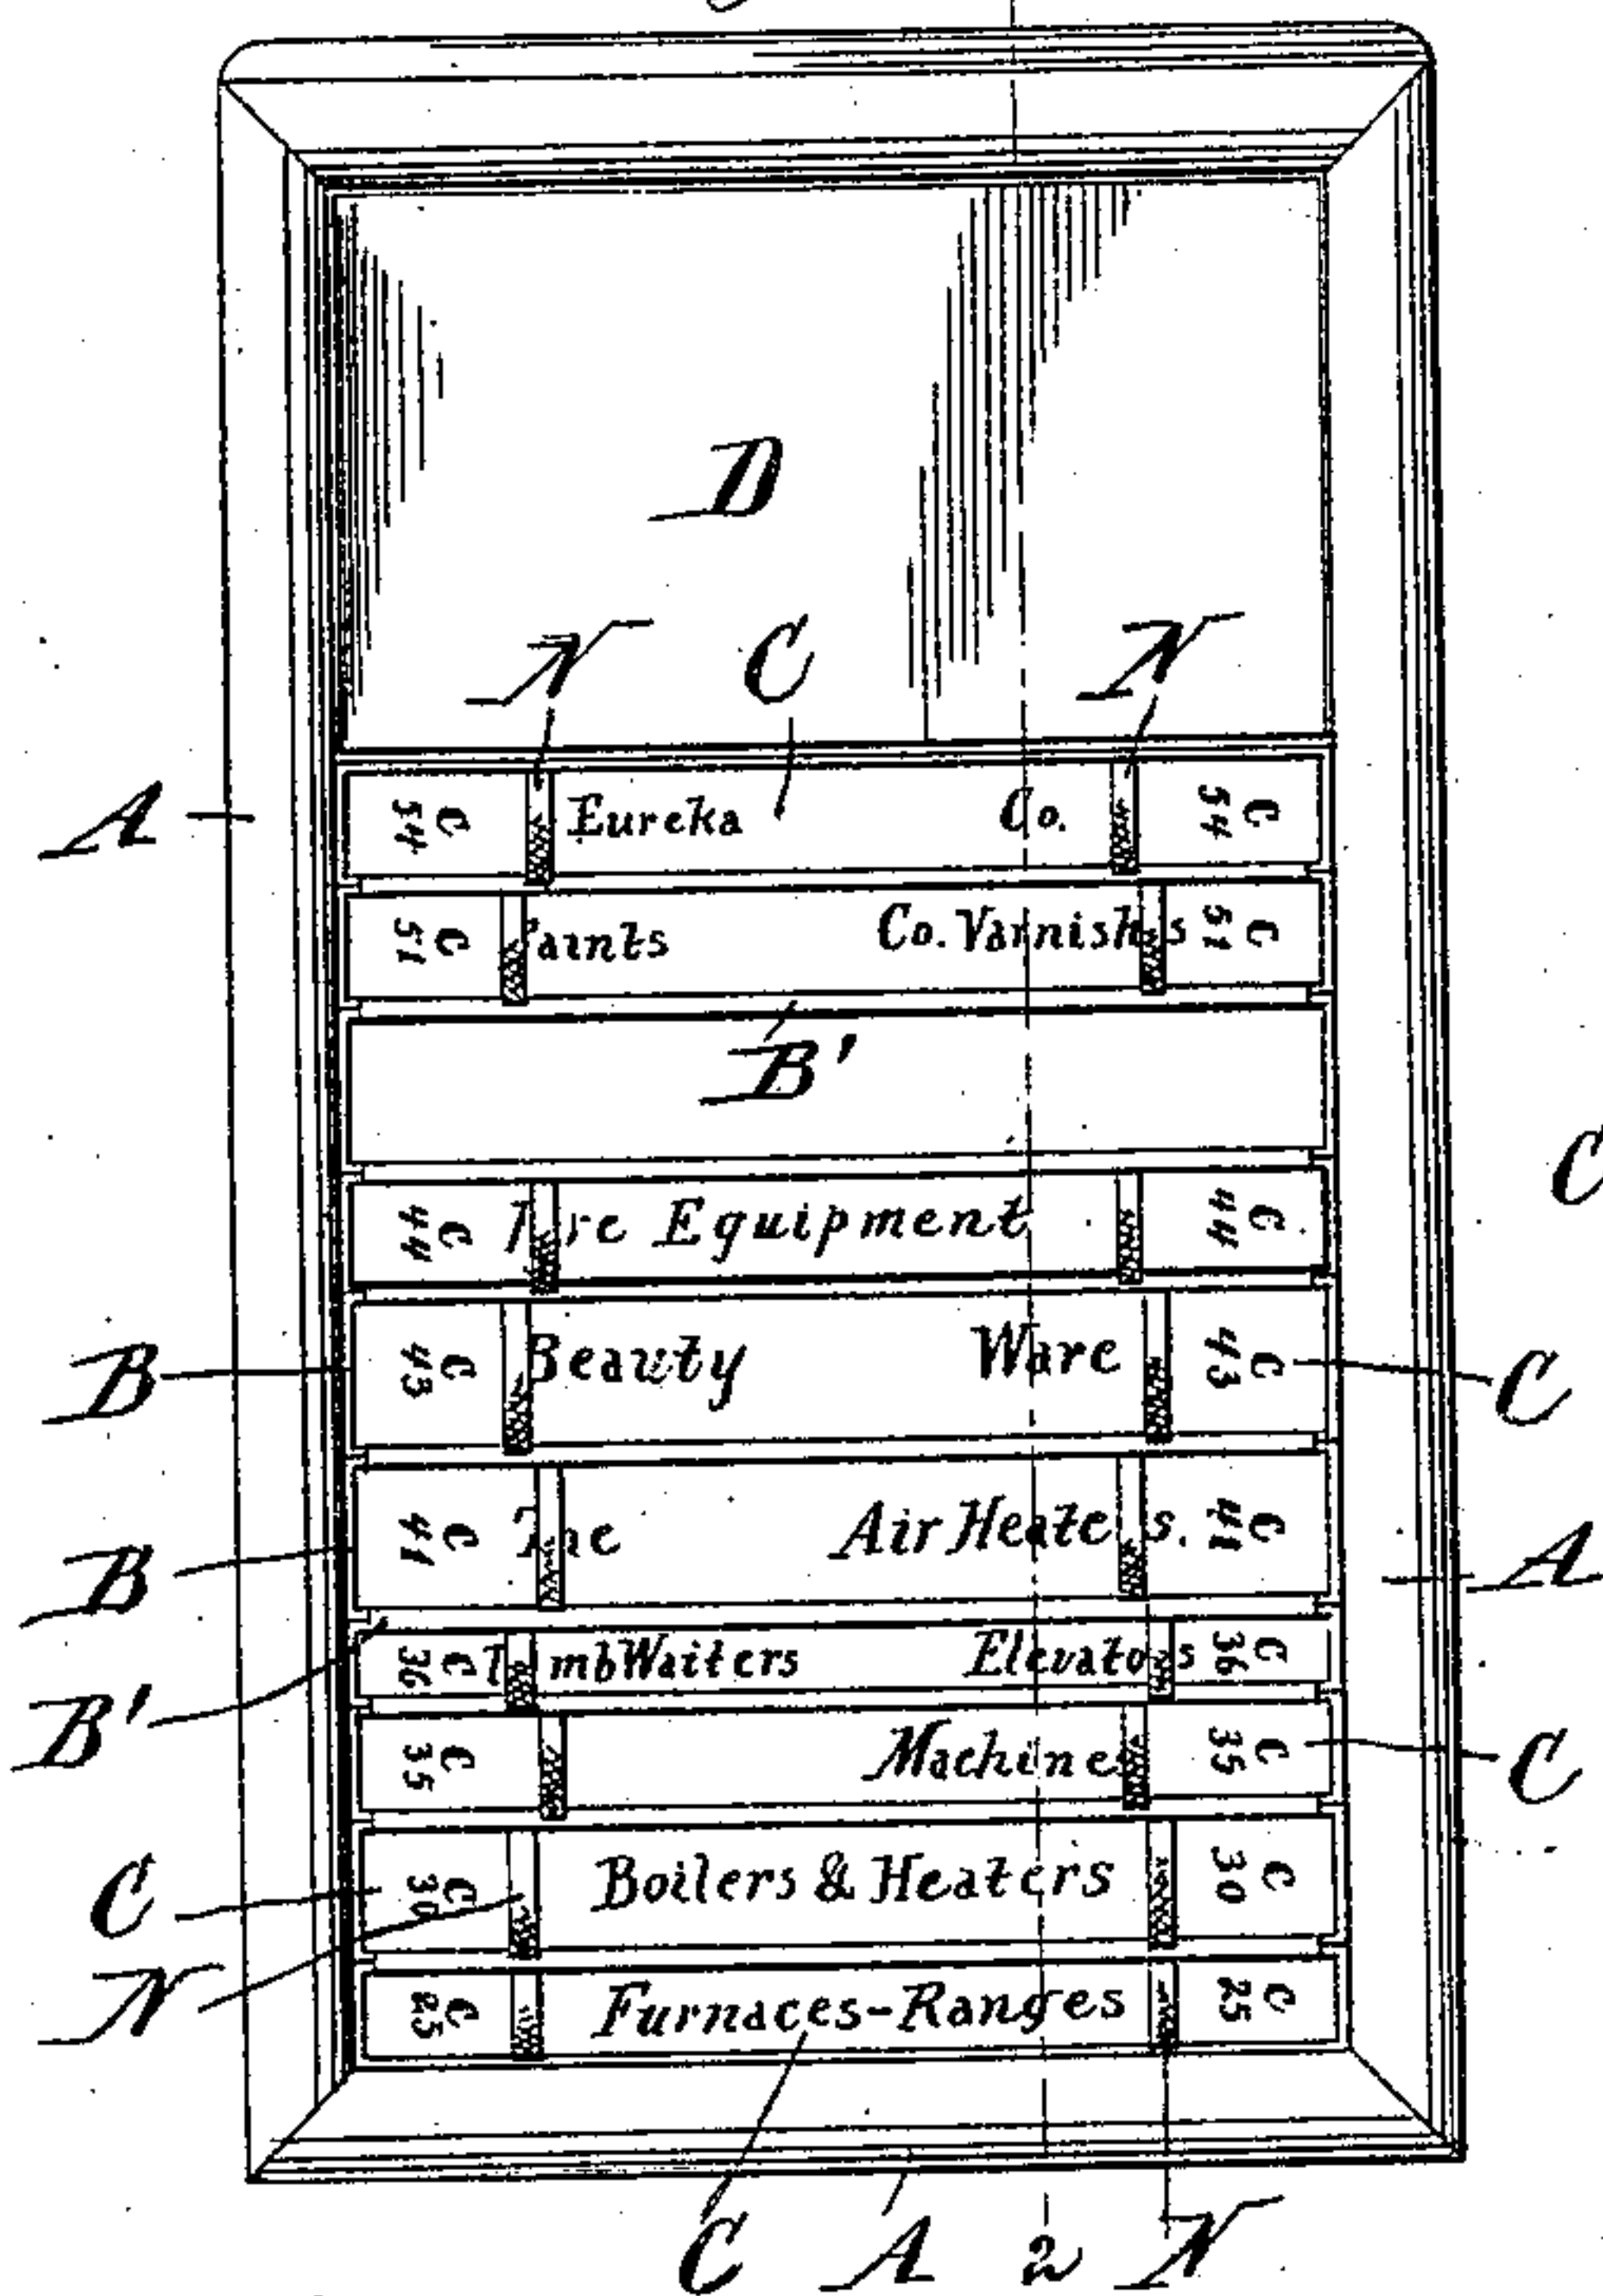 D
N C N
A
C 54 Eureka Co. C 54
C 51 Paints Co. Varnishes C 51
B'
C
C 44 Equipment C 44
B C 43 Beauty Ware C 43 C
B C 41 The Air Heaters. C 41 A
B' C 36 Elevators C 36
C 35 Machines C 35 C
C C 30 Boilers & Heaters C 30
N C 25 Furnaces-Ranges C 25
C A 2 N